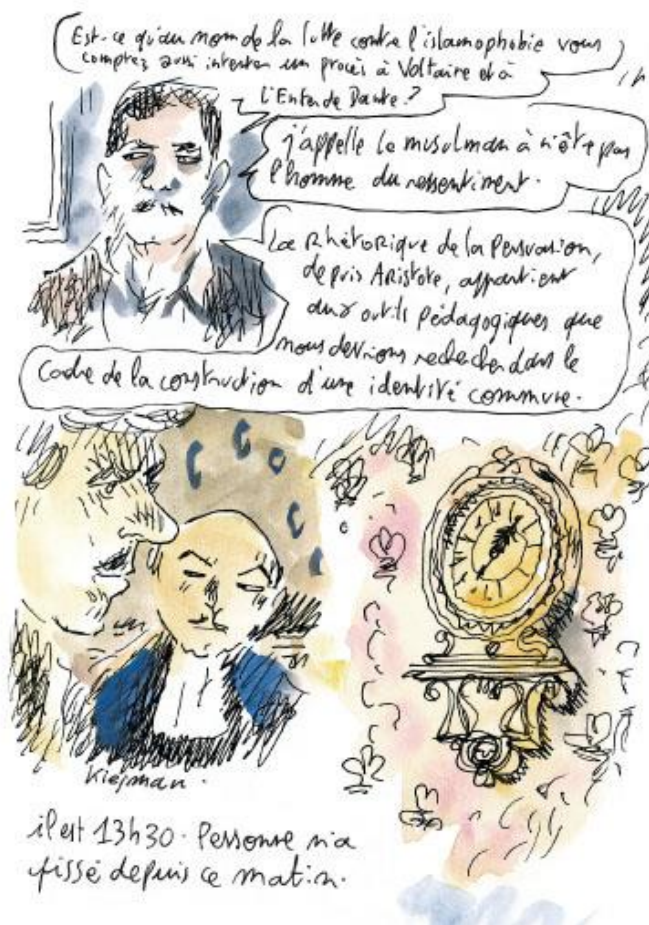 Est-ce qu'au nom de la lutte contre l'islamophobie vous
comptez aussi intenter un procès à Voltaire et à
L'Enfer de Dante ?
j'appelle le musulman à n'être pas
l'homme du ressentiment.
La Rhétorique de la Persuasion,
depuis Aristote, appartient
aux outils pédagogiques que
nous devrions rechercher dans le
Cadre de la construction d'une identité commune.
Kiejman.
il est 13h30. Personne n'a
pissé depuis ce matin.